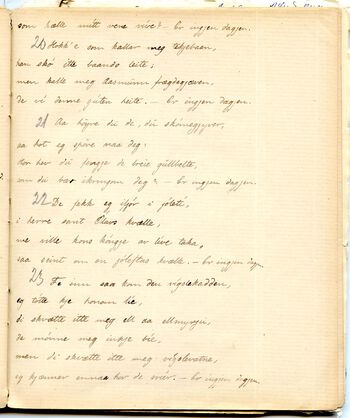 som kalle mitt vene vive? – Er ingjen dagjen.
20 Hokk'e som kallar meg skjebaen,
han sko itte baando leite;
men kalle meg Aasmunn frægdagjæven,
de vi denne guten heite. – Er ingjen dagjen.
21 Aa höyre du de, du skömegyver,
aa hot eg spöre naa deg:
Kor hev du fengje de breie gullbelte,
om du bær ikringom deg? – Er ingjen dagjen.
22 De fekk eg ifjor i joleti,
i herre sant Olavs kvælle,
me ville kons kongje av live taka,
saa seint om ein joleftas kvælle. – Er ingjen dagjen.
23 Te inn saa kom den vigslekadden,
eg totte kje honom lie,
di skvætte itte meg ell aa ellmyrju,
de mónne meg inkje bie,
men di skvætte itte meg vigslevatne,
eg kjenner ennaa kor de svier. – Er ingjen dagjen.